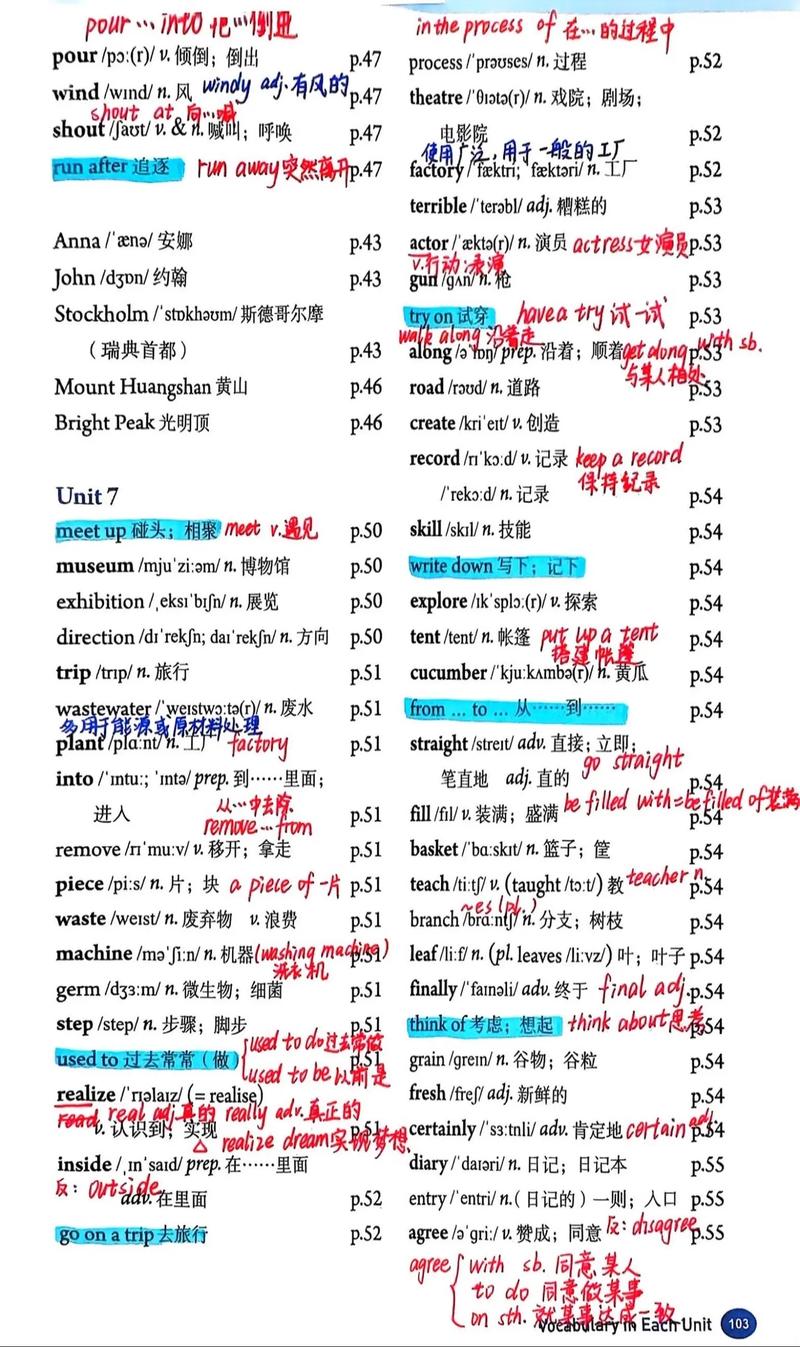 pour … into 把…倒进
pour /pɔː(r)/ v. 倾倒；倒出 p.47
wind /wɪnd/ n. 风 windy adj. 有风的 p.47
shout at 向…喊
shout /ʃaʊt/ v. & n. 喊叫；呼唤 p.47
run after 追逐 run away 突然离开 p.47
Anna /ˈænə/ 安娜 p.43
John /dʒɒn/ 约翰 p.43
Stockholm /ˈstɒkhəʊm/ 斯德哥尔摩
（瑞典首都） p.43
Mount Huangshan 黄山 p.46
Bright Peak 光明顶 p.46
Unit 7
meet up 碰头；相聚 meet v. 遇见 p.50
museum /mjuˈziːəm/ n. 博物馆 p.50
exhibition /ˌeksɪˈbɪʃn/ n. 展览 p.50
direction /dɪˈrekʃn; daɪˈrekʃn/ n. 方向 p.50
trip /trɪp/ n. 旅行 p.51
wastewater /ˈweɪstwɔːtə(r)/ n. 废水 p.51
多用于能源或原材料处理
plant /plɑːnt/ n. 工厂 factory p.51
into /ˈɪntuː; ˈɪntə/ prep. 到……里面；
进入 p.51
从…中去除
remove … from
remove /rɪˈmuːv/ v. 移开；拿走 p.51
piece /piːs/ n. 片；块 a piece of 一片 p.51
waste /weɪst/ n. 废弃物 v. 浪费 p.51
machine /məˈʃiːn/ n. 机器 (washing machine) p.51
洗衣机
germ /dʒɜːm/ n. 微生物；细菌 p.51
step /step/ n. 步骤；脚步 p.51
used to do 过去常做
used to 过去常常（做） p.51
used to be 以前是
realize /ˈrɪəlaɪz/ (= realise)
real adj. 真的 really adv. 真正的
v. 认识到；实现 p.51
△ realize dream 实现梦想
inside /ˌɪnˈsaɪd/ prep. 在……里面
反: outside
adv. 在里面 p.52
go on a trip 去旅行 p.52
in the process of 在…的过程中
process /ˈprəʊses/ n. 过程 p.52
theatre /ˈθɪətə(r)/ n. 戏院；剧场；
电影院 p.52
使用广泛,用于一般的工厂
factory /ˈfæktri; ˈfæktəri/ n. 工厂 p.52
terrible /ˈterəbl/ adj. 糟糕的 p.53
actor /ˈæktə(r)/ n. 演员 actress 女演员 p.53
v. 行动;表演
gun /ɡʌn/ n. 枪 p.53
try on 试穿 have a try 试一试 p.53
walk along 沿着走
along /əˈlɒŋ/ prep. 沿着；顺着 get along with sb. p.53
与某人相处
road /rəʊd/ n. 道路 p.53
create /kriˈeɪt/ v. 创造 p.53
record /rɪˈkɔːd/ v. 记录 keep a record
保持纪录
/ˈrekɔːd/ n. 记录 p.54
skill /skɪl/ n. 技能 p.54
write down 写下；记下 p.54
explore /ɪkˈsplɔː(r)/ v. 探索 p.54
tent /tent/ n. 帐篷 put up a tent p.54
搭建帐篷
cucumber /ˈkjuːkʌmbə(r)/ n. 黄瓜 p.54
from … to … 从……到…… p.54
straight /streɪt/ adv. 直接；立即；
go straight
笔直地 adj. 直的 p.54
fill /fɪl/ v. 装满；盛满 be filled with = be filled of 装满 p.54
basket /ˈbɑːskɪt/ n. 篮子；筐 p.54
teach /tiːtʃ/ v. (taught /tɔːt/) 教 teacher n. p.54
~es (pl.)
branch /brɑːntʃ/ n. 分支；树枝 p.54
leaf /liːf/ n. (pl. leaves /liːvz/) 叶；叶子 p.54
finally /ˈfaɪnəli/ adv. 终于 final adj. p.54
think of 考虑；想起 think about 思考 p.54
grain /ɡreɪn/ n. 谷物；谷粒 p.54
fresh /freʃ/ adj. 新鲜的 p.54
certainly /ˈsɜːtnli/ adv. 肯定地 certain adj. p.54
diary /ˈdaɪəri/ n. 日记；日记本 p.55
entry /ˈentri/ n.（日记的）一则；入口 p.55
agree /əˈɡriː/ v. 赞成；同意 反: disagree p.55
agree with sb. 同意某人
to do 同意做某事
on sth. 就某事达成一致
Vocabulary in Each Unit 103